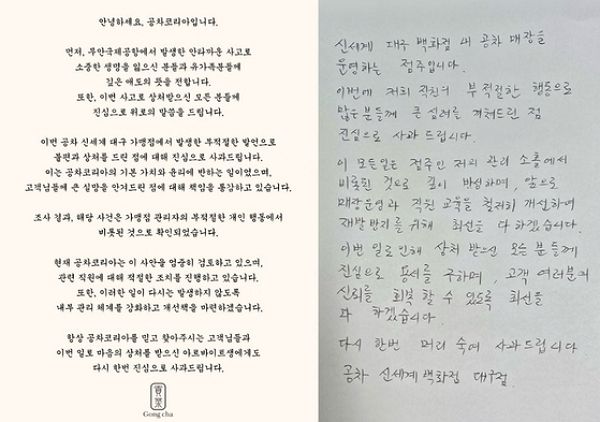 안녕하세요, 공차코리아입니다.
먼저, 무안국제공항에서 발생한 안타까운 사고로
소중한 생명을 잃으신 분들과 유가족분들께
깊은 애도의 뜻을 전합니다.
또한, 이번 사고로 상처받으신 모든 분들께
진심으로 위로의 말씀을 드립니다.
이번 공차 신세계 대구 가맹점에서 발생한 부적절한 발언으로
불편과 상처를 드린 점에 대해 진심으로 사과드립니다.
이는 공차코리아의 기본 가치와 윤리에 반하는 일이었으며,
고객님들께 큰 실망을 안겨드린 점에 대해 책임을 통감하고 있습니다.
조사 결과, 해당 사건은 가맹점 관리자의 부적절한 개인 행동에서
비롯된 것으로 확인되었습니다.
현재 공차코리아는 이 사안을 엄중히 검토하고 있으며,
관련 직원에 대해 적절한 조치를 진행하고 있습니다.
또한, 이러한 일이 다시는 발생하지 않도록
내부 관리 체계를 강화하고 개선책을 마련하겠습니다.
항상 공차코리아를 믿고 찾아주시는 고객님들과
이번 일로 마음의 상처를 받으신 아르바이트생에게도
다시 한번 진심으로 사과드립니다.
Gong cha
신세계 대구 백화점 내 공차 매장을
운영하는 점주입니다.
이번에 저희 직원의 부적절한 행동으로
많은 분들께 큰 심려를 끼쳐드린 점
진심으로 사과드립니다.
이 모든일은 점주인 저의 관리 소홀에서
비롯된 것으로 깊이 반성하며, 앞으로
매장운영과 직원 교육을 철저히 개선하여
재발방지를 위해 최선을 다 하겠습니다.
이번 일로인해 상처 받으신 모든 분들께
진심으로 용서를 구하며, 고객 여러분의
신뢰를 회복 할 수 있도록 최선을
다 하겠습니다.
다시 한번 머리 숙여 사과드립니다
공차 신세계백화점 대구점